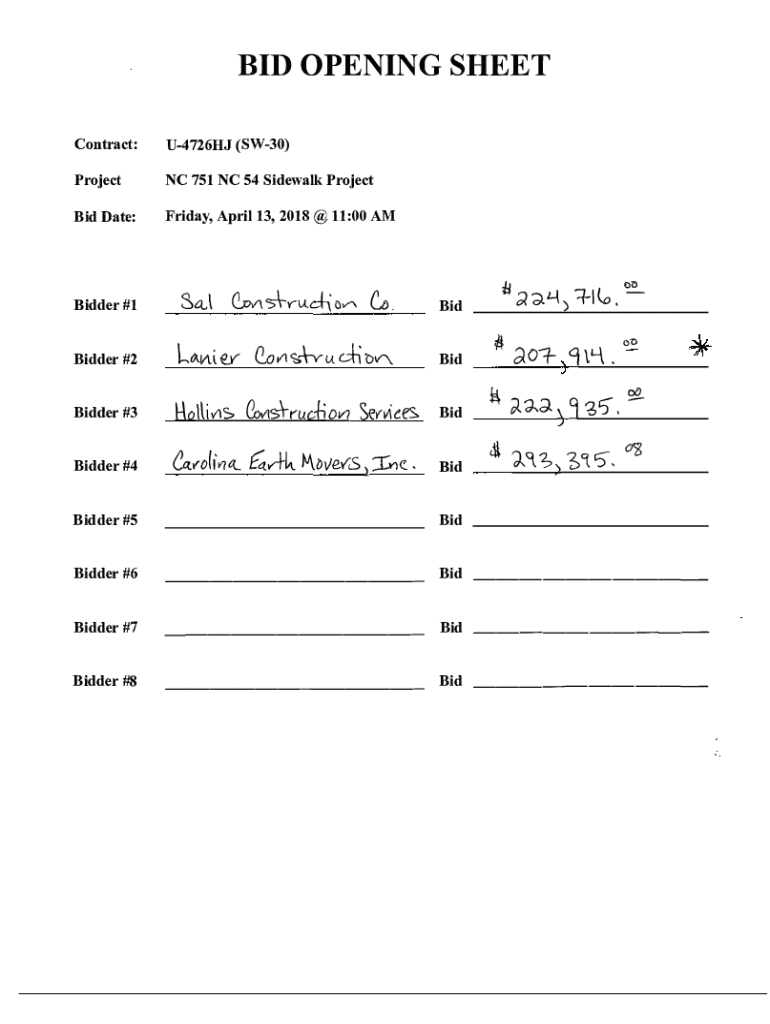 BID OPENING SHEET
Contract: U-4726HJ (SW-30)
Project NC 751 NC 54 Sidewalk Project
Bid Date: Friday, April 13, 2018 @ 11:00 AM
Bidder #1 Sal Construction Co. Bid $224,716.00
Bidder #2 Lanier Construction Bid $207,914.00 *
Bidder #3 Hollins Construction Services Bid $222,935.00
Bidder #4 Carolina Earth Movers, Inc. Bid $293,395.08
Bidder #5 Bid
Bidder #6 Bid
Bidder #7 Bid
Bidder #8 Bid